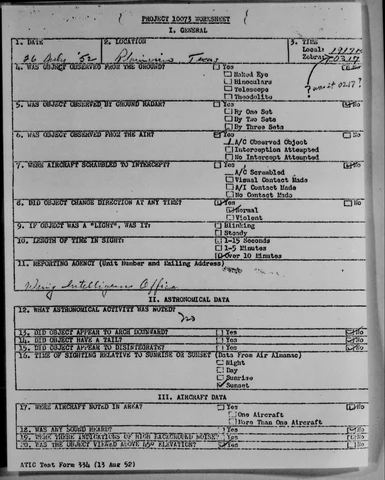 PROJECT 10073 WORKSHEET
I. GENERAL
1. DATE
2. LOCATION
3. TIME
Local: 1917
Zebra: 0317
26 July '52 Plainview Texas
4. WAS OBJECT OBSERVED FROM THE GROUND? Yes No
Naked Eye
Binoculars
Telescope
Theodolite
5. WAS OBJECT OBSERVED BY GROUND RADAR? Yes No
By One Set
By Two Sets
By Three Sets
6. WAS OBJECT OBSERVED FROM THE AIR? Yes No
A/C Observed Object
Interception Attempted
No Intercept Attempted
7. WERE AIRCRAFT SCRAMBLED TO INTERCEPT? Yes No
A/C Scrambled
Visual Contact Made
A/I Contact Made
No Contact Made
8. DID OBJECT CHANGE DIRECTION AT ANY TIME? Yes No
Normal
Violent
9. IF OBJECT WAS A "LIGHT", WAS IT: Blinking
Steady
10. LENGTH OF TIME IN SIGHT: 1-15 Seconds
1-5 Minutes
Over 10 Minutes
11. REPORTING AGENCY (Unit Number and Mailing Address)
Wing Intelligence Office
II. ASTRONOMICAL DATA
12. WHAT ASTRONOMICAL ACTIVITY WAS NOTED?
13. DID OBJECT APPEAR TO ARCH DOWNWARD? Yes No
14. DID OBJECT HAVE A TAIL? Yes No
15. DID OBJECT APPEAR TO DISINTEGRATE? Yes No
16. TIME OF SIGHTING RELATIVE TO SUNRISE OR SUNSET (Data From Air Almanac)
Night
Day
Sunrise
Sunset
III. AIRCRAFT DATA
17. WERE AIRCRAFT NOTED IN AREA? Yes No
One Aircraft
More Than One Aircraft
18. WAS ANY SOUND HEARD? Yes No
19. WERE THERE INDICATIONS OF HIGH BACKGROUND NOISE? Yes No
20. WAS THE OBJECT VIEWED ABOVE 45° ELEVATION? Yes No
ATIC Test Form 334 (13 Aug 52)